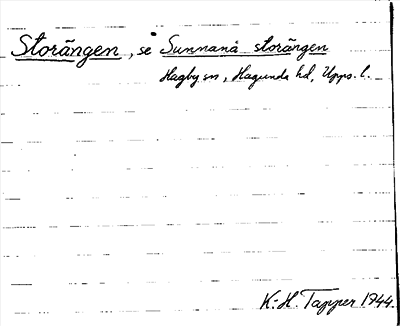 Storängen, se Sunnanå storängen
Hagby sn, Hagunda hd, Upps. l.
K.-H. Tapper 1944.